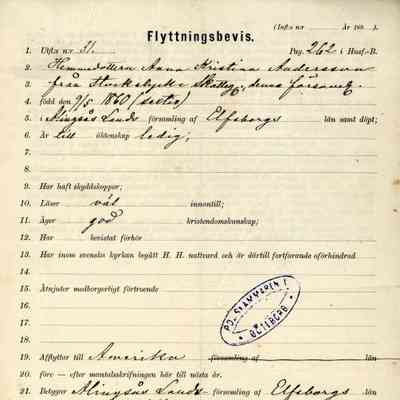 (Inft:s n:r År 189 .).
Flyttningsbevis.
1. Utft:s n:r 31. Pag. 262 i Husf.-B.
2. Hemmadottern Anna Kristina Andersson
3. från Skattegd, denna församl.
4. född den 9/5 1860 (sextio)
5. i Alingsås Lands- församling af Elfsborgs län samt döpt;
6. Är till äktenskap ledig;
7.
8.
9. Har haft skyddskoppor;
10. Läser väl innontill;
11. Äger god kristendomskunskap;
12. Har bevistat förhör
13. Har inom svenska kyrkan begått H. H. nattvard och är dertill fortfarande oförhindrad
14.
15. Åtnjuter medborgerligt förtroende
16.
17.
18.
POLISKAMMAREN I GÖTEBORG
19. Afflyttar till Amerika församling af län
20. före — efter mantalsskrifningen här till nästa år.
21. Betygar Alingsås Lands- församling af Elfsborgs län